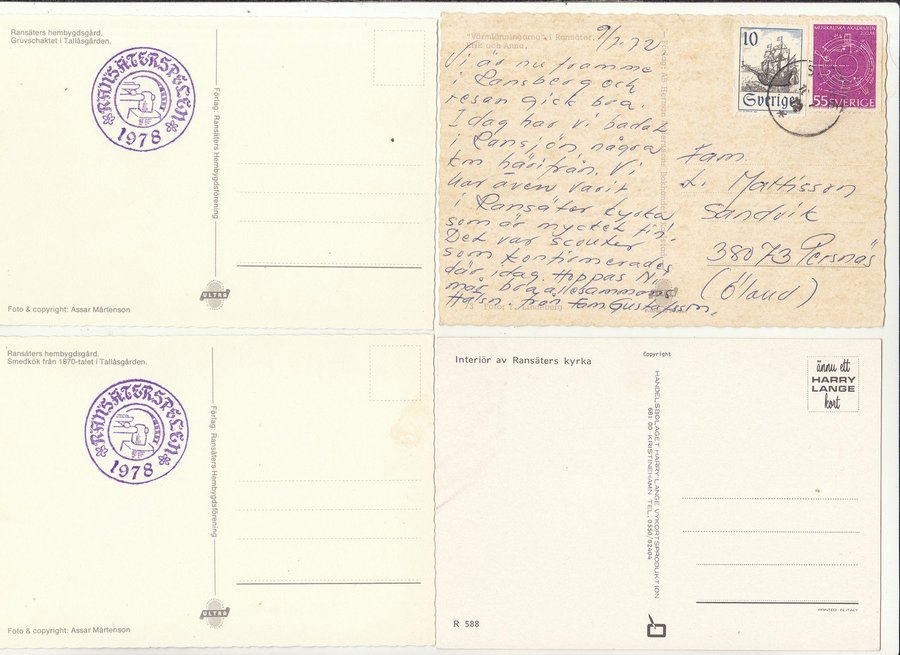 Ransäters hembygdsgård.
Gruvschaktet i Tallåsgården.
RANSÄTERSPELEN
1978
Förlag: Ransäters Hembygdsförening
ULTRA
Foto & copyright: Assar Mårtenson
"Värmlänningarna" i Ransäter.
Erik och Anna.
9/7.72
Vi är nu framme
i Ransberg och
resan gick bra.
Idag har vi badat
i Ransjön några
km härifrån. Vi
har även varit
i Ransäter kyrka
som är mycket fin.
Det var scouter
som konfirmerades
där idag. Hoppas Ni
mår bra allesammans
Hälsn. från Fam Gustafsson.
Foto:
10
Sverige
MUSIKALISKA AKADEMIEN
55 SVERIGE
Fam.
L. Mattisson
Sandvik
38073 Persnäs
(Öland)
Ransäters hembygdsgård.
Smedkök från 1870-talet i Tallåsgården.
RANSÄTERSPELEN
1978
Förlag: Ransäters Hembygdsförening
ULTRA
Foto & copyright: Assar Mårtenson
Interiör av Ransäters kyrka
Copyright
HANDELSBOLAGET HARRY LANGE VYKORTSPRODUKTION
681 00 KRISTINEHAMN TEL. 0550/82404
ännu ett
HARRY
LANGE
kort
PRINTED IN ITALY
R 588